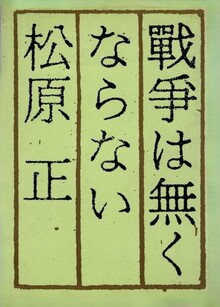 戰爭は無く
ならない
松原 正